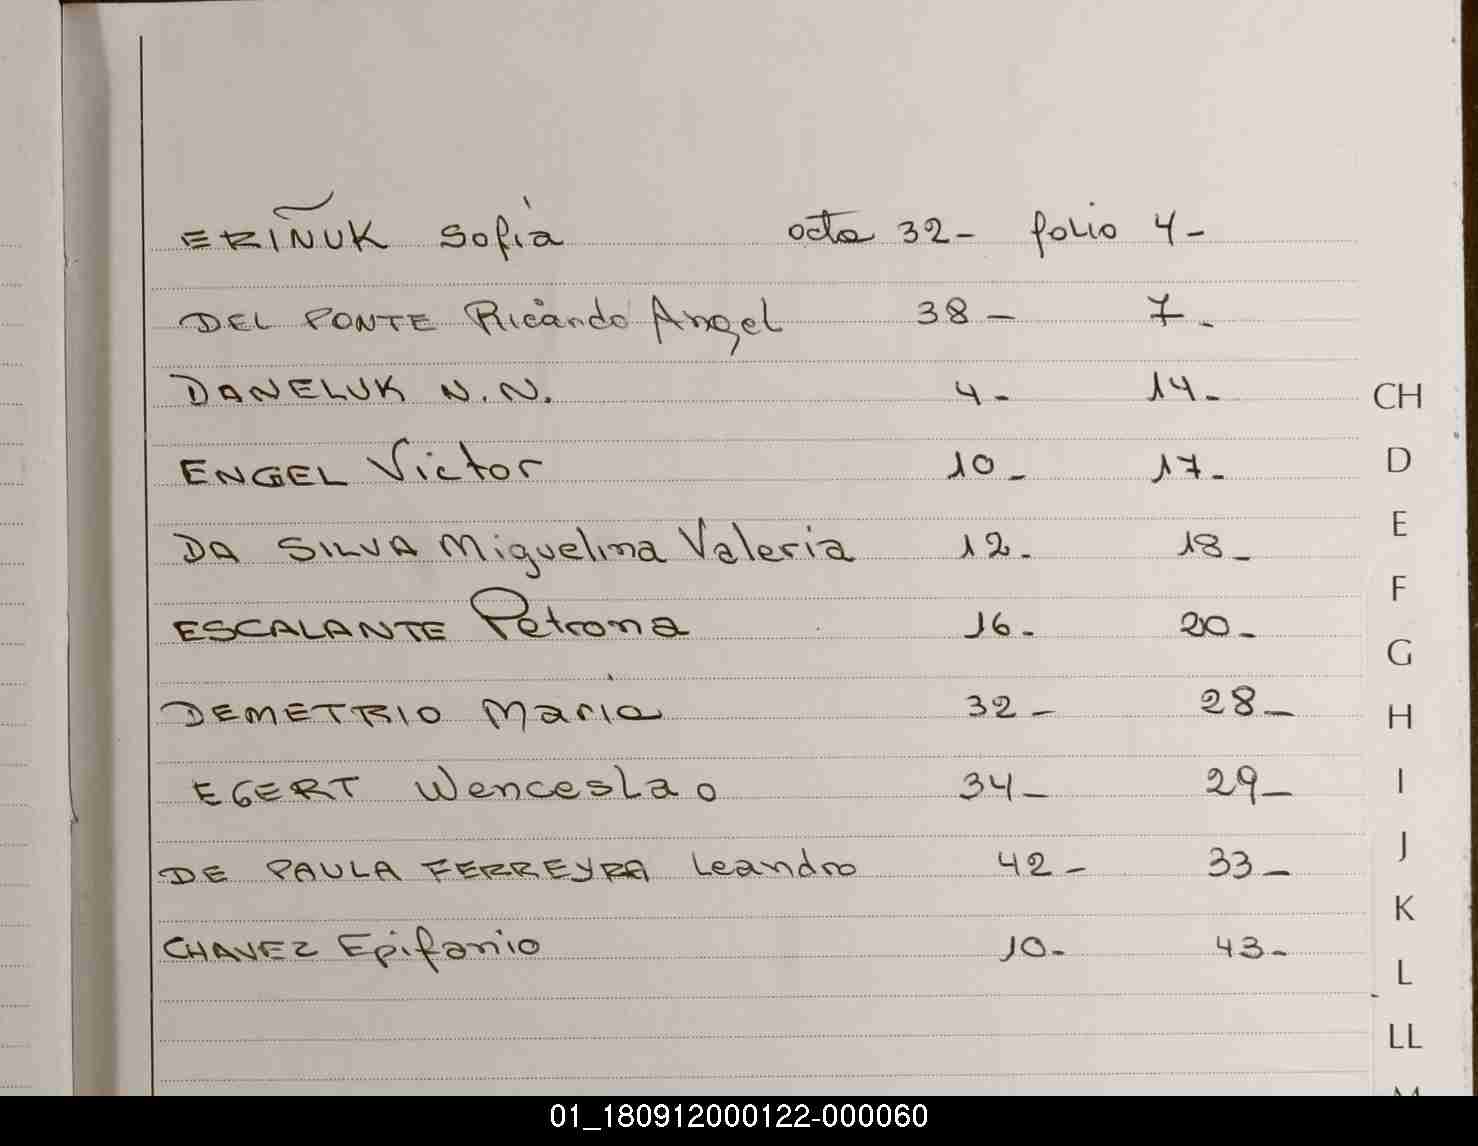 ERIÑUK Sofia acta 32- folio 4-
DEL PONTE Ricardo Angel 38- 7-
DANELUK N.N. 4- 14-
ENGEL Victor 10- 17-
DA SILVA Miguelina Valeria 12- 18-
ESCALANTE Petrona 16- 20-
DEMETRIO Maria 32- 28-
EGERT Wenceslao 34- 29-
DE PAULA FERREYRA Leandro 42- 33-
CHAVEZ Epifanio 10- 43-
CH
D
E
F
G
H
I
J
K
L
LL
01_180912000122-000060